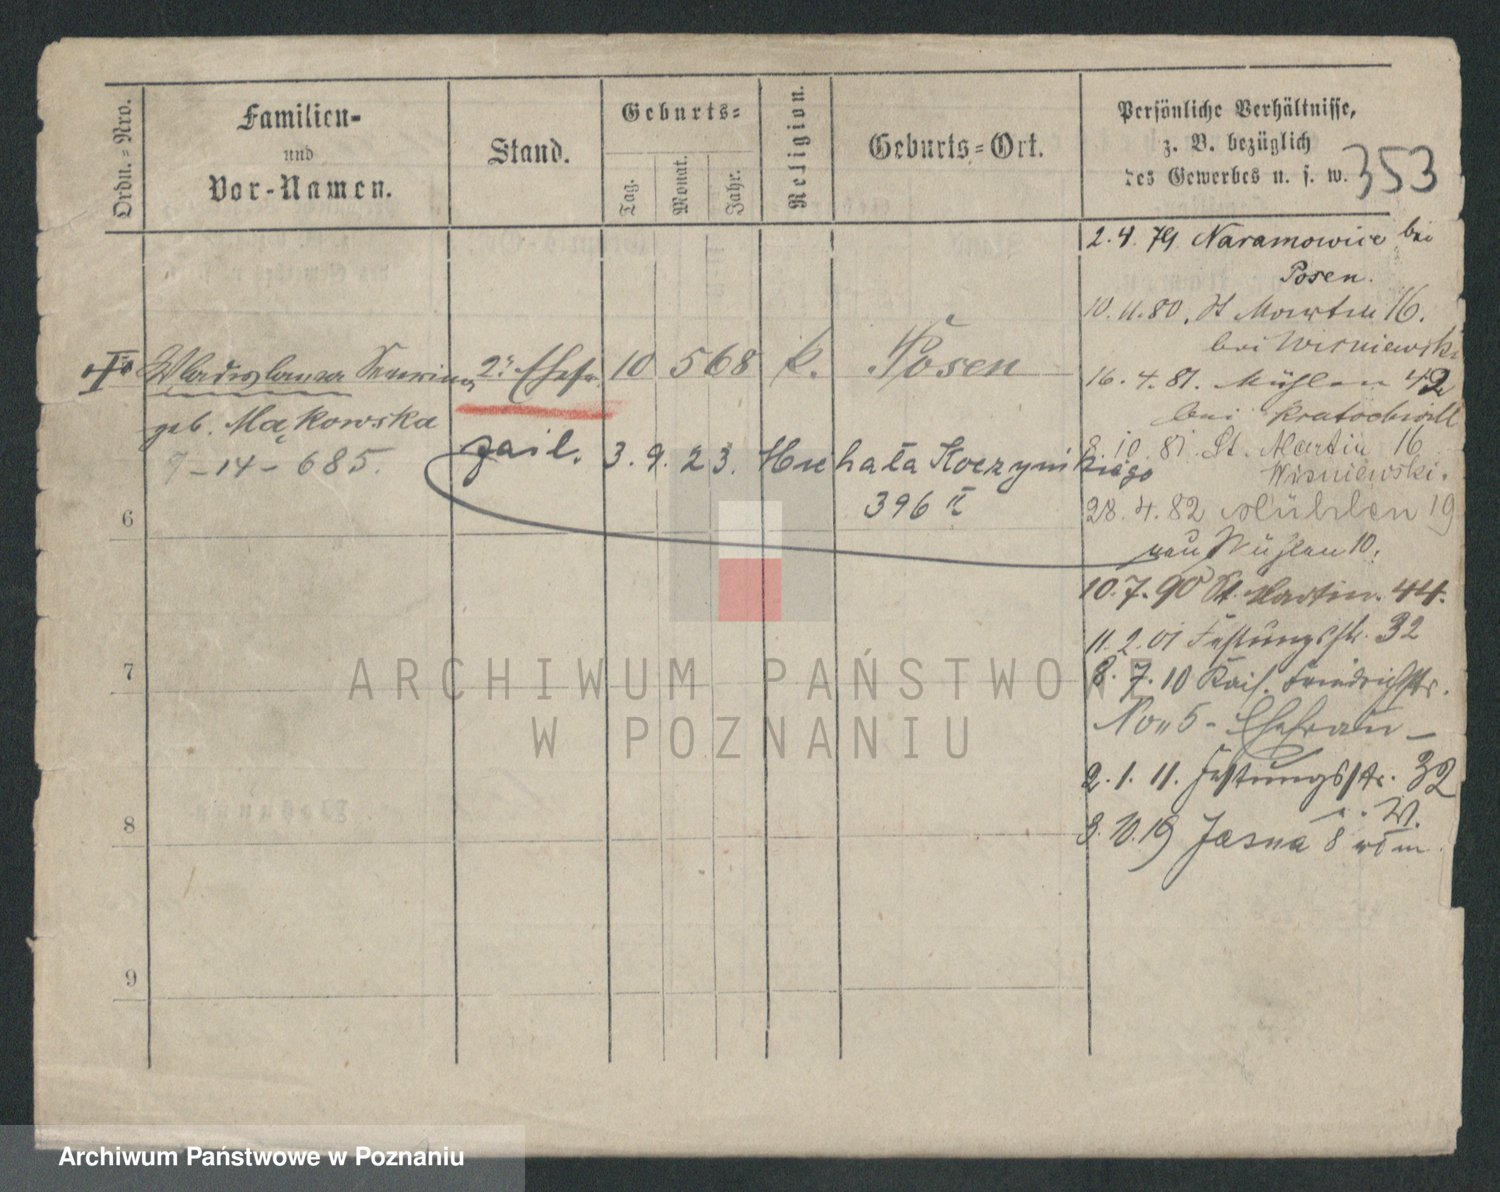 Ordn.=Nro.
Familien-
und
Vor-Namen.
Stand.
Geburts=
Tag.
Monat.
Jahr.
Religion.
Geburts=Ort.
Persönliche Verhältnisse,
z. B. bezüglich
des Gewerbes u. s. w.
353
2. 4. 79. Naramowice bei
Posen.
10. 11. 80. St Martin 16.
bei Wisniewski
Wladyslawa 2t Ehefr. 10 5 68 k. Posen
16. 4. 81. Mühlen 42
bei Kratochwill
geb. Mąkowska
7-14-685.
zail. 3. 9. 23. Michała Koczyńskiego
396
8. 10. 81. St. Martin 16
Wisniewski.
28. 4. 82 Mühlen 19
neu Mühlen 10.
10. 7. 90 St. Martin. 44.
11. 2. 01 Festungsstr. 32
8. 7. 10 Kais. Friedrichstr.
No 5 - Ehefrau -
2. 1. 11. Festungsstr. 32
3. 10. 19 Jasna 8
6
7
8
9
ARCHIWUM PAŃSTWOWE
W POZNANIU
Archiwum Państwowe w Poznaniu